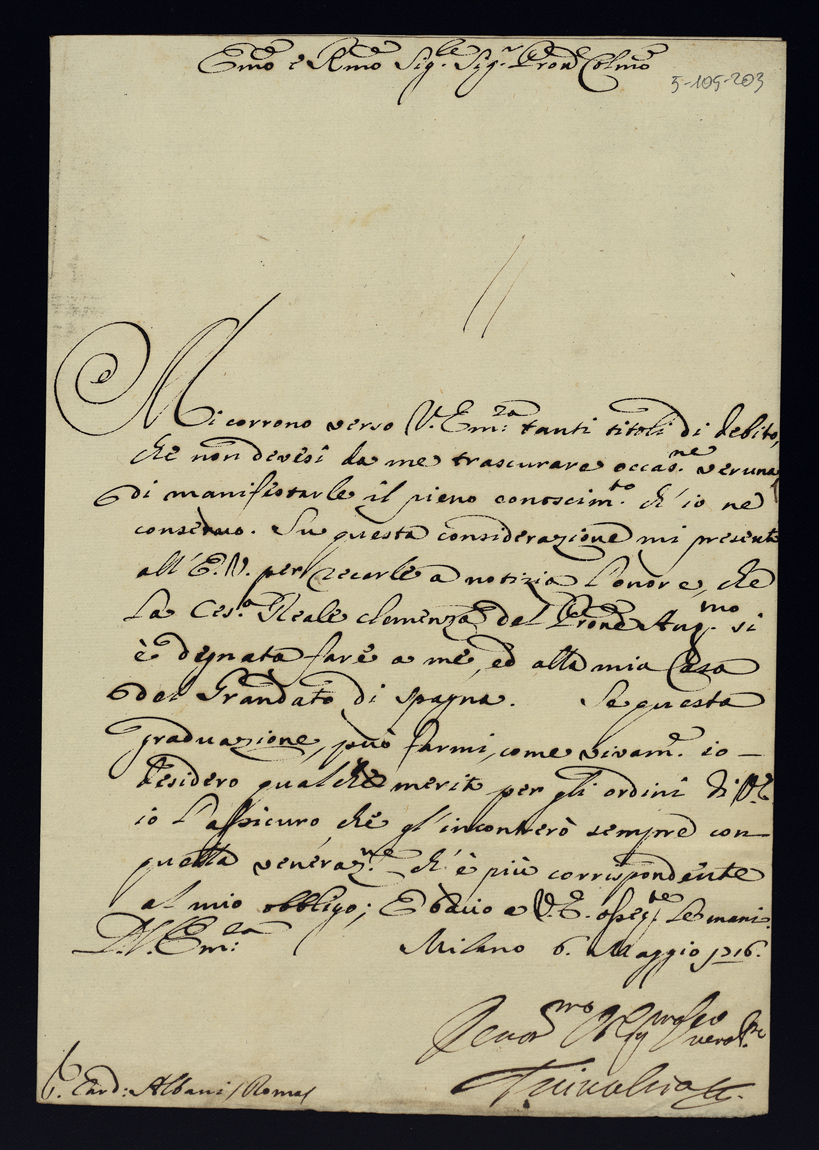 Emo e Rmo Sig.re Sig.r Prone Colmo
5-105-203
Mi corrono verso V. Em:za tanti titoli di debito,
che non devesi da me trascurare occas.ne veruna
di manifestarle il pieno conoscim.to ch'io ne
conservo. Su questa considerazione mi presento
all'E.V. per recarle a notizia l'onore, che
la Ces.a Reale clemenza del Prone Aug.mo si
è degnata fare a me, ed alla mia Casa
del Grandato di Spagna. Se questa
graduazione, può farmi, come vivam.e io
desidero qualche merito per gli ordini di V.E.
io l'assicuro che gl'incontrerò sempre con
quella veneraz.ne ch'è più corrispondente
al mio obbligo; E bacio a V.E. osseq.te le mani.
D.V. Em:za Milano 6. Maggio 1716.
vero
Trivulzio
Card: Albani / Roma /